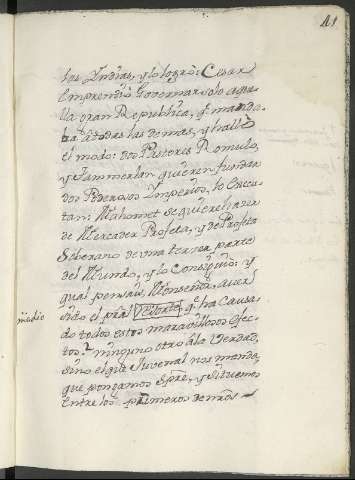 41
las Yndias, y lo logrò: Cesar
emprendiò Governar solo aque-
lla gran Republica, q.e manda-
ba à todas las demas, y hallò
el modo: dos Pastores Romulo,
y Tammerlan quieren fundar
dos Poderosos Imperios, lo execu-
tan: Mahomet se quiere hazer
de Mercader Profeta, y de Profeta
Soberano de una tercera parte
del Mundo, y lo Consiguiò: y
qual pensais, Monseñor, aver
sido el
q.e ha Causa-
do todos estos maravillosos efec-
tos? ninguno otro à la Verdad,
sino el que Juvenal nos manda,
que pongamos Spre, y situemos
entre los primeros de nros
medio